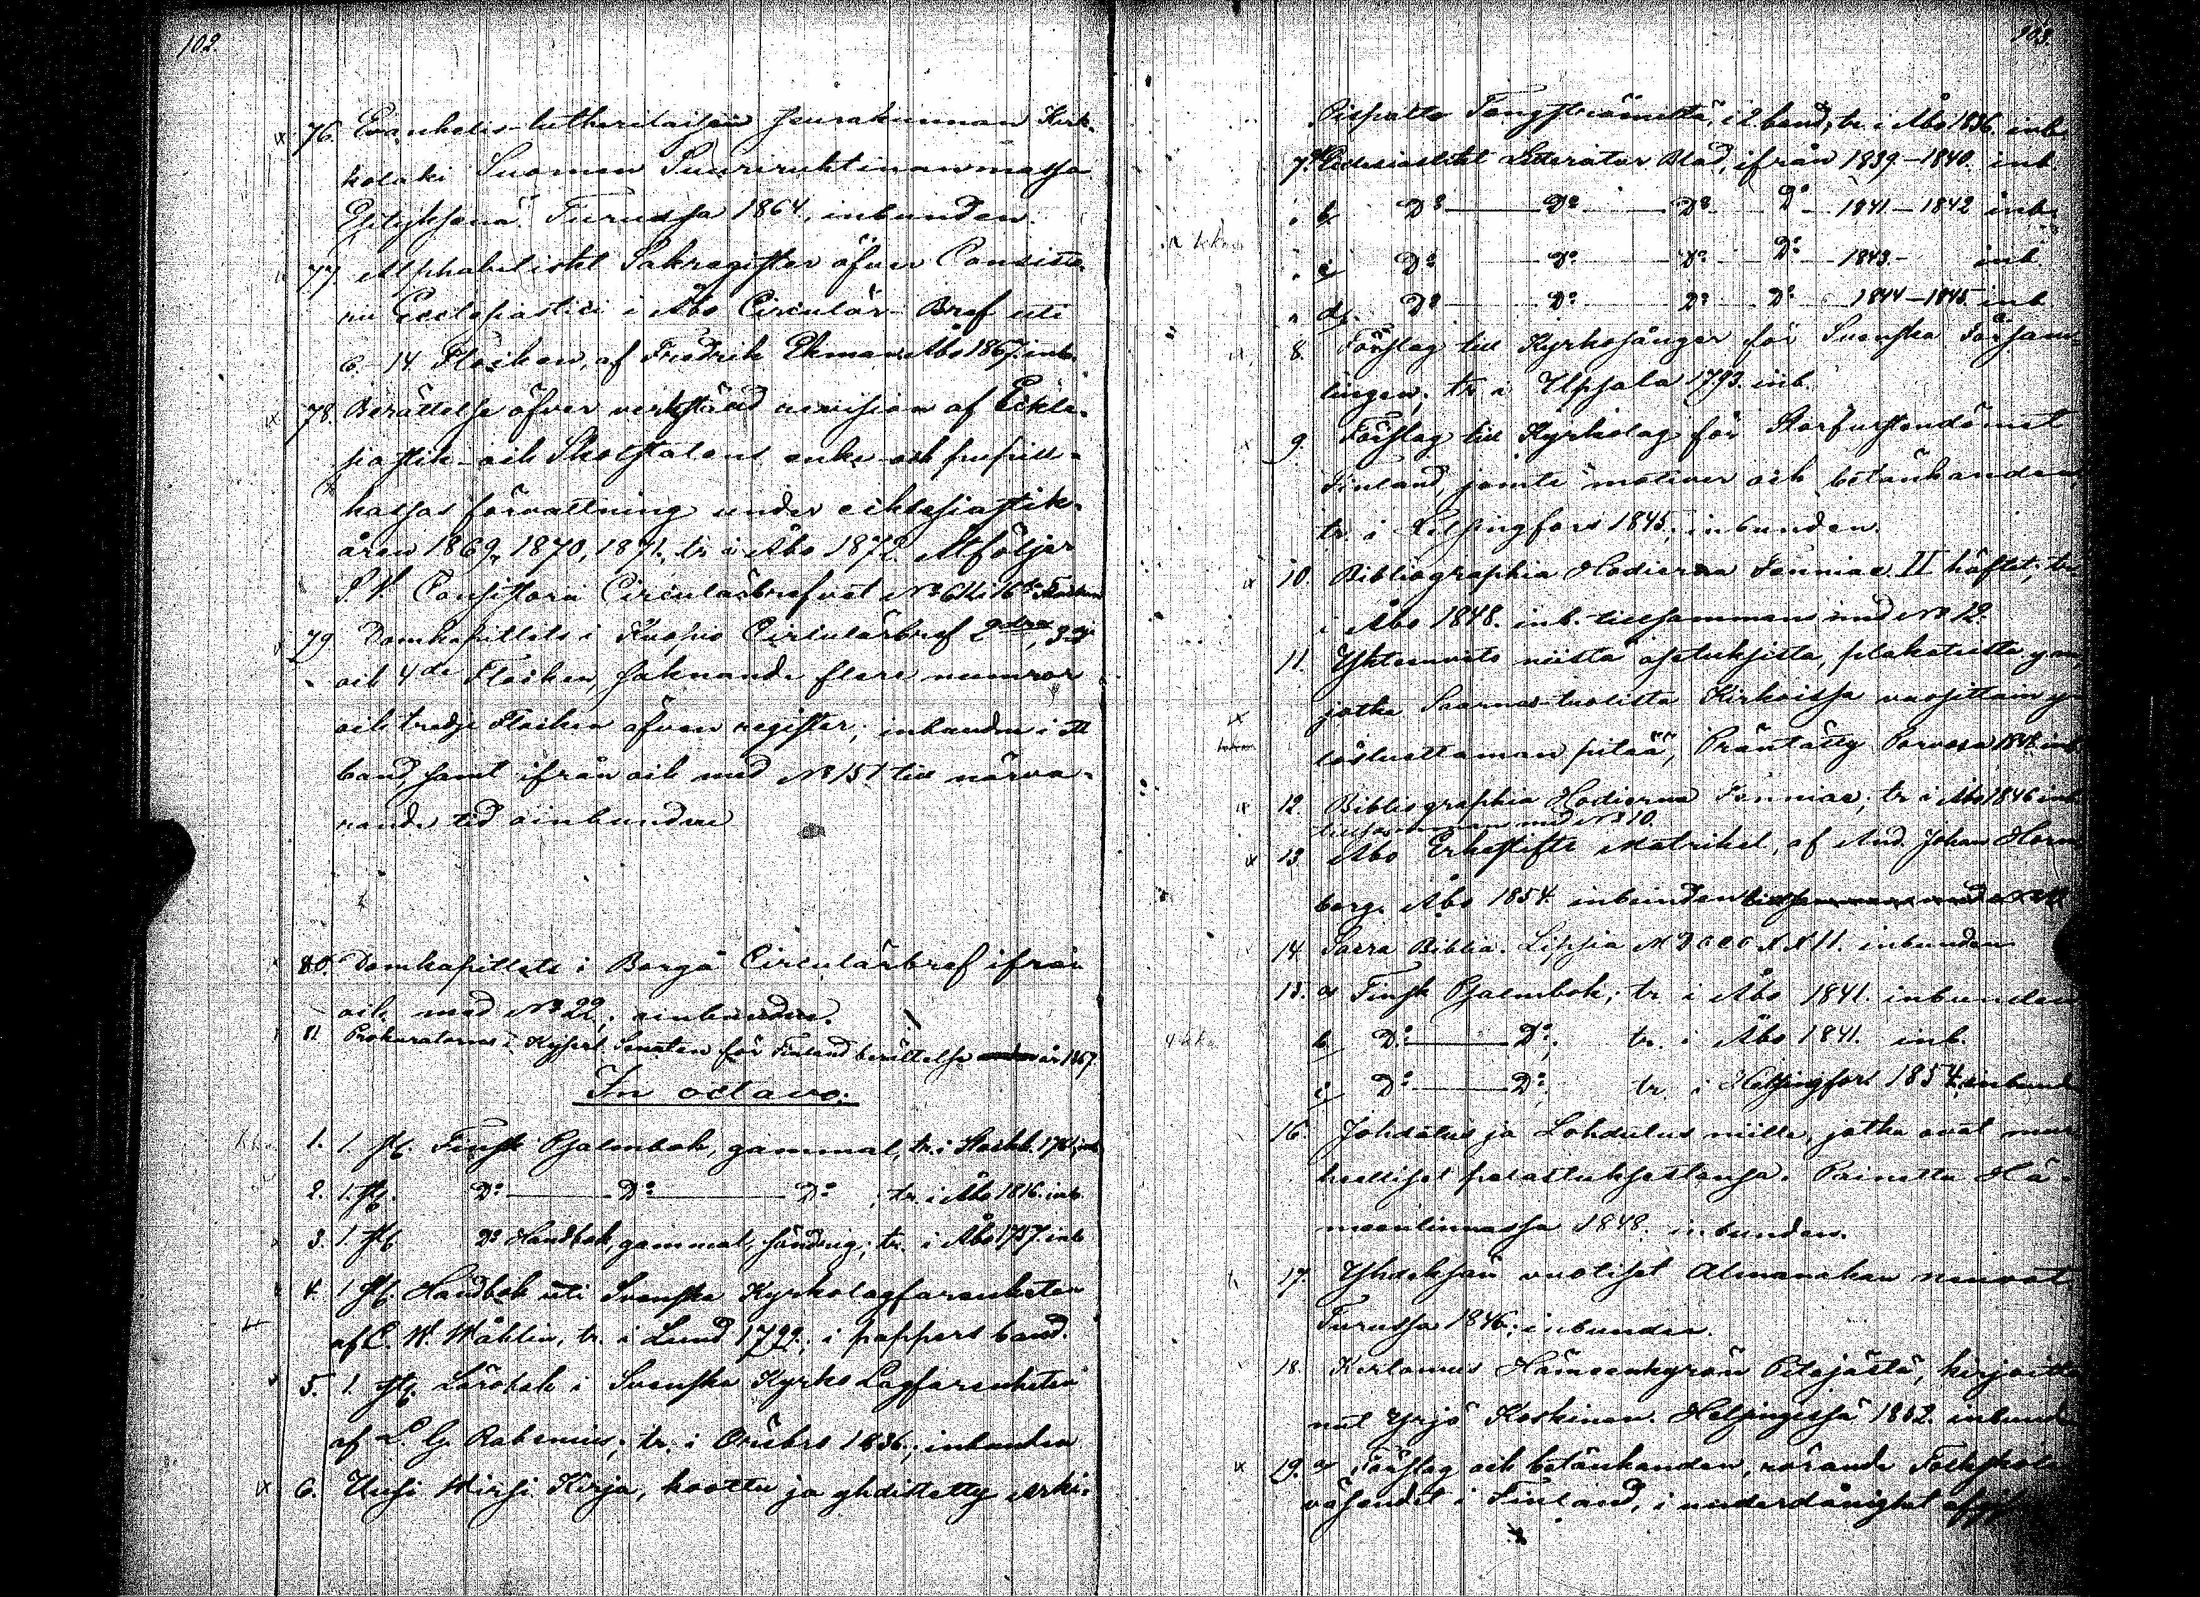 102.
76. Evankelis-lutherilaisen Seurakunnan Kirk-
kolaki Suomen Suuriruhtinanmaassa
Turussa 1864, inbunden.
77. Alphabetiskt Sakregister öfver Consisto-
rii Ecclesiastici i Åbo Circulär-Bref uti
6-14 Flocken, af Fredrik Ekman Åbo 1867. inb.
78. Berättelse öfver verkstäld revision af Eckle-
siastik- och Skolstatens enke- och pupill-
kassas förvaltning under ecklesiastik-
åren 1869, 1870, 1871. tr. i Åbo 1872. Åtföljer
Consistorii Circulärbrefvet No 611 i 16de Flocken
79. Domkapitlets i Kuopio Circulärbref 2dra, 3dje
och 4de Flocken, saknande flere numror
och tredje Flocken äfven register; inbunden i ett
band, samt ifrån och med No 151 till närva-
rande tid oinbundne
80. Domkapitlets i Borgå Circulärbref ifrån
och med No 22; oinbundne.
81. Prokuratorns i Kejserl. Senaten för Finland berättelse år 1867.
In octavo:
1. 1. st. Finsk Psalmbok, gammal, tr. i Stockh. 1701, inb.
2. 1. st. Do Do Do; tr. i Åbo 1816. inb.
3. 1. st. Do Handbok, gammal, söndrig; tr. i Åbo 1757. inb.
4. 1 st. Handbok uti Svenska Kyrkolagfarenheten
af C. W. Wåhlin, tr. i Lund 1799. i pappers band.
5. 1. st. Lärobok i Svenska Kyrko Lagfarenheten
af L. G. Rabenius; tr. i Örebro 1836; inbunden
6. Uusi Wirsi Kirja, koottu ja yhdistetty Arki-
103.
Pispalta Tengströmiltä, i 2 band; tr. i Åbo 1836. inb.
7. a Ecclesiastikt Litteratur Blad, ifrån 1839-1840. inb.
b Do Do Do Do 1841-1842 inb.
c Do Do Do Do 1843- inb.
d. Do Do Do Do 1844-1845 inb.
8. Förslag till Kyrkosånger för Svenska Försam-
lingen; tr. i Upsala 1793. inb.
9. Förslag till Kyrkolag för Storfurstendömet
Finland, jemte motiver och betänkanden,
tr. i Helsingfors 1845; inbunden.
10. Bibliographia Hodierna Fenniae. II häftet; tr.
i Åbo 1848. inb. tillsammans med No 12.
11. Yhteenveto niistä asetuksista, plakateista
jotka Saarna-tuolista Kirkoissa vuosittain
pitää, Präntätty Porvossa 1848. inb.
12. Bibliographia Hodierna Fenniae; tr. i Åbo 1846 inb.
tillsammans med No 10.
13. Åbo Erkestifts Matrikel, af And. Johan Horn-
borg. Åbo 1854. inbunden
14. Sacra Biblia. Lipsia inbunden
15. a Finsk Psalmbok; tr. i Åbo 1841. inbunden
b Do Do; tr. i Åbo 1841. inb.
c Do Do; tr. i Helsingfors 1854, inbund.
16. Johdatus ja Lohdutus niille, jotka ovat mur-
heelliset pelastuksestansa. Painettu Hä-
meenlinnassa 1848. inbunden.
17. Yhdeksän vuotiset Almanakan neuvot,
Turussa 1846; inbunden.
18. Kertomus Hämeenkyrön Pitäjästä, kirjoitta-
nut Yrjö Koskinen. Helsingissä 1852. inbunden
19. a Förslag och betänkanden, rörande Folkskole-
väsendet i Finland, i underdånighet